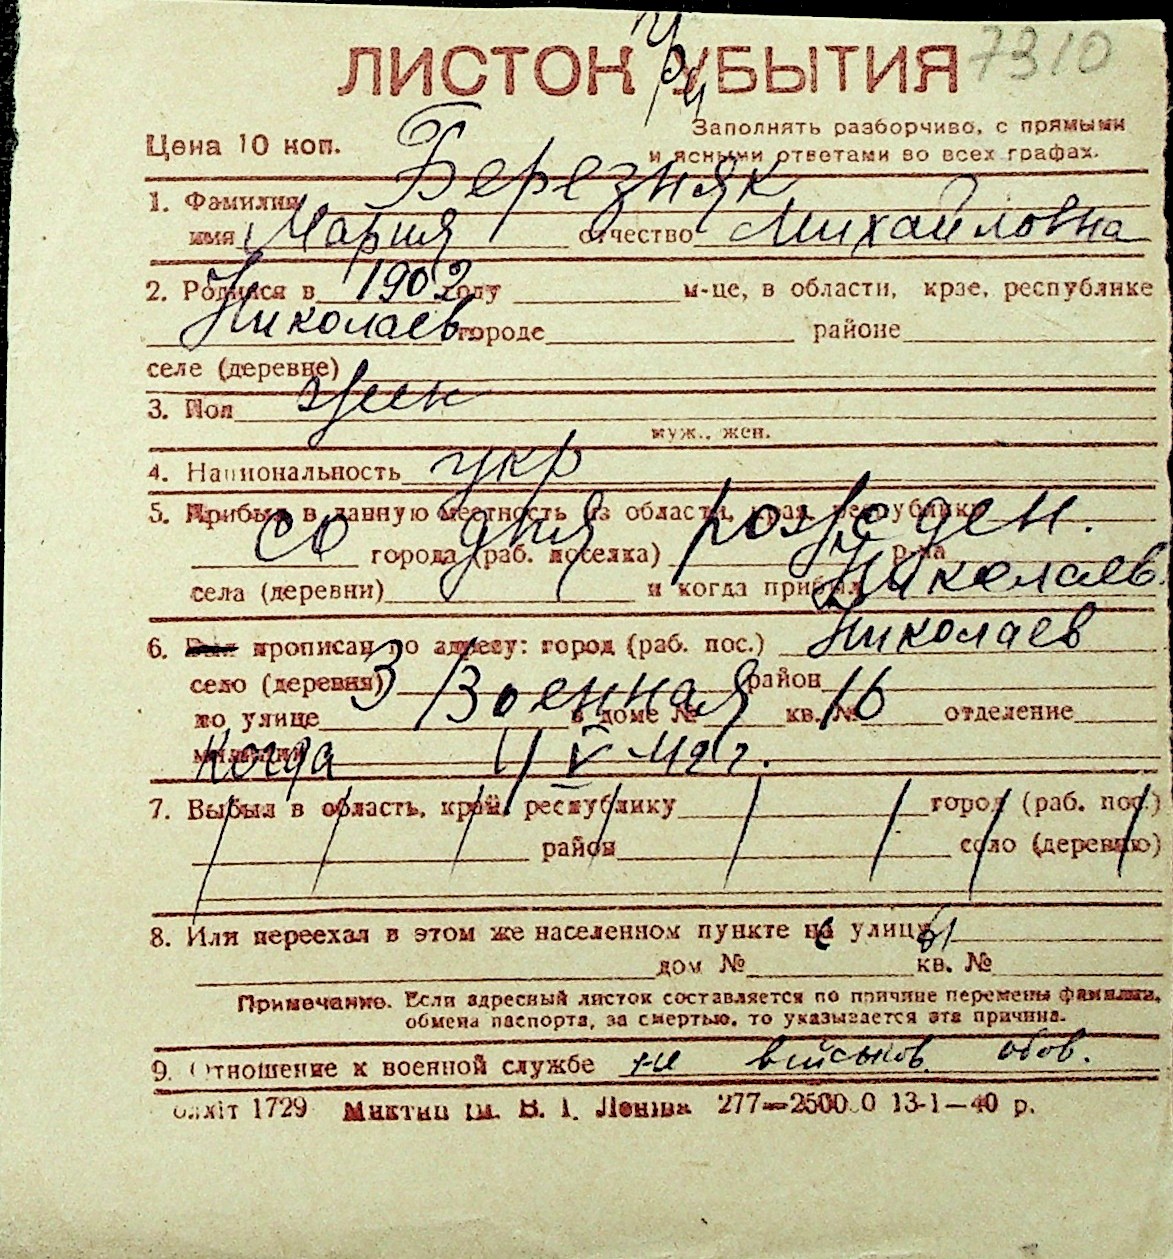 ЛИСТОК УБЫТИЯ 7310
Цена 10 коп.
Заполнять разборчиво, с прямыми
и ясными ответами во всех графах.
1. Фамилия Березняк
имя Мария отчество Михайловна
2. Родился в 1902 году м-це, в области, крае, республике
Николаев городе районе
селе (деревне)
3. Пол жен
муж., жен.
4. Национальность укр
5. Прибыл в данную местность из области, края, республики
со дня рожден.
города (раб. поселка) р-на
села (деревни) и когда прибыл Николаев
6. Был прописан по адресу: город (раб. пос.) Николаев
село (деревня) район
по улице 3 Военная в доме № 16 кв. № отделение
милиции Когда V 42 г.
7. Выбыл в область, край, республику город (раб. пос.)
район село (деревню)
8. Или переехал в этом же населенном пункте на улицу
дом № кв. №
Примечание. Если адресный листок составляется по причине перемены фамилии,
обмена паспорта, за смертью, то указывается эта причина.
9. Отношение к военной службе не військов. обов.
1729 В. І. Леніна 277—25000 13-1—40 р.